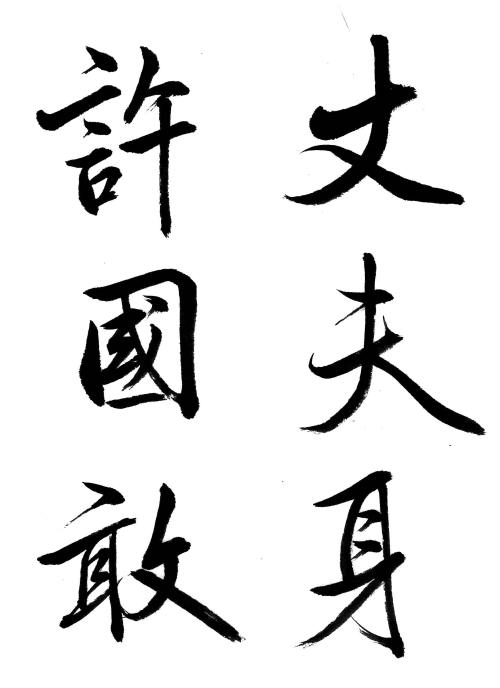 丈夫身
許國敢